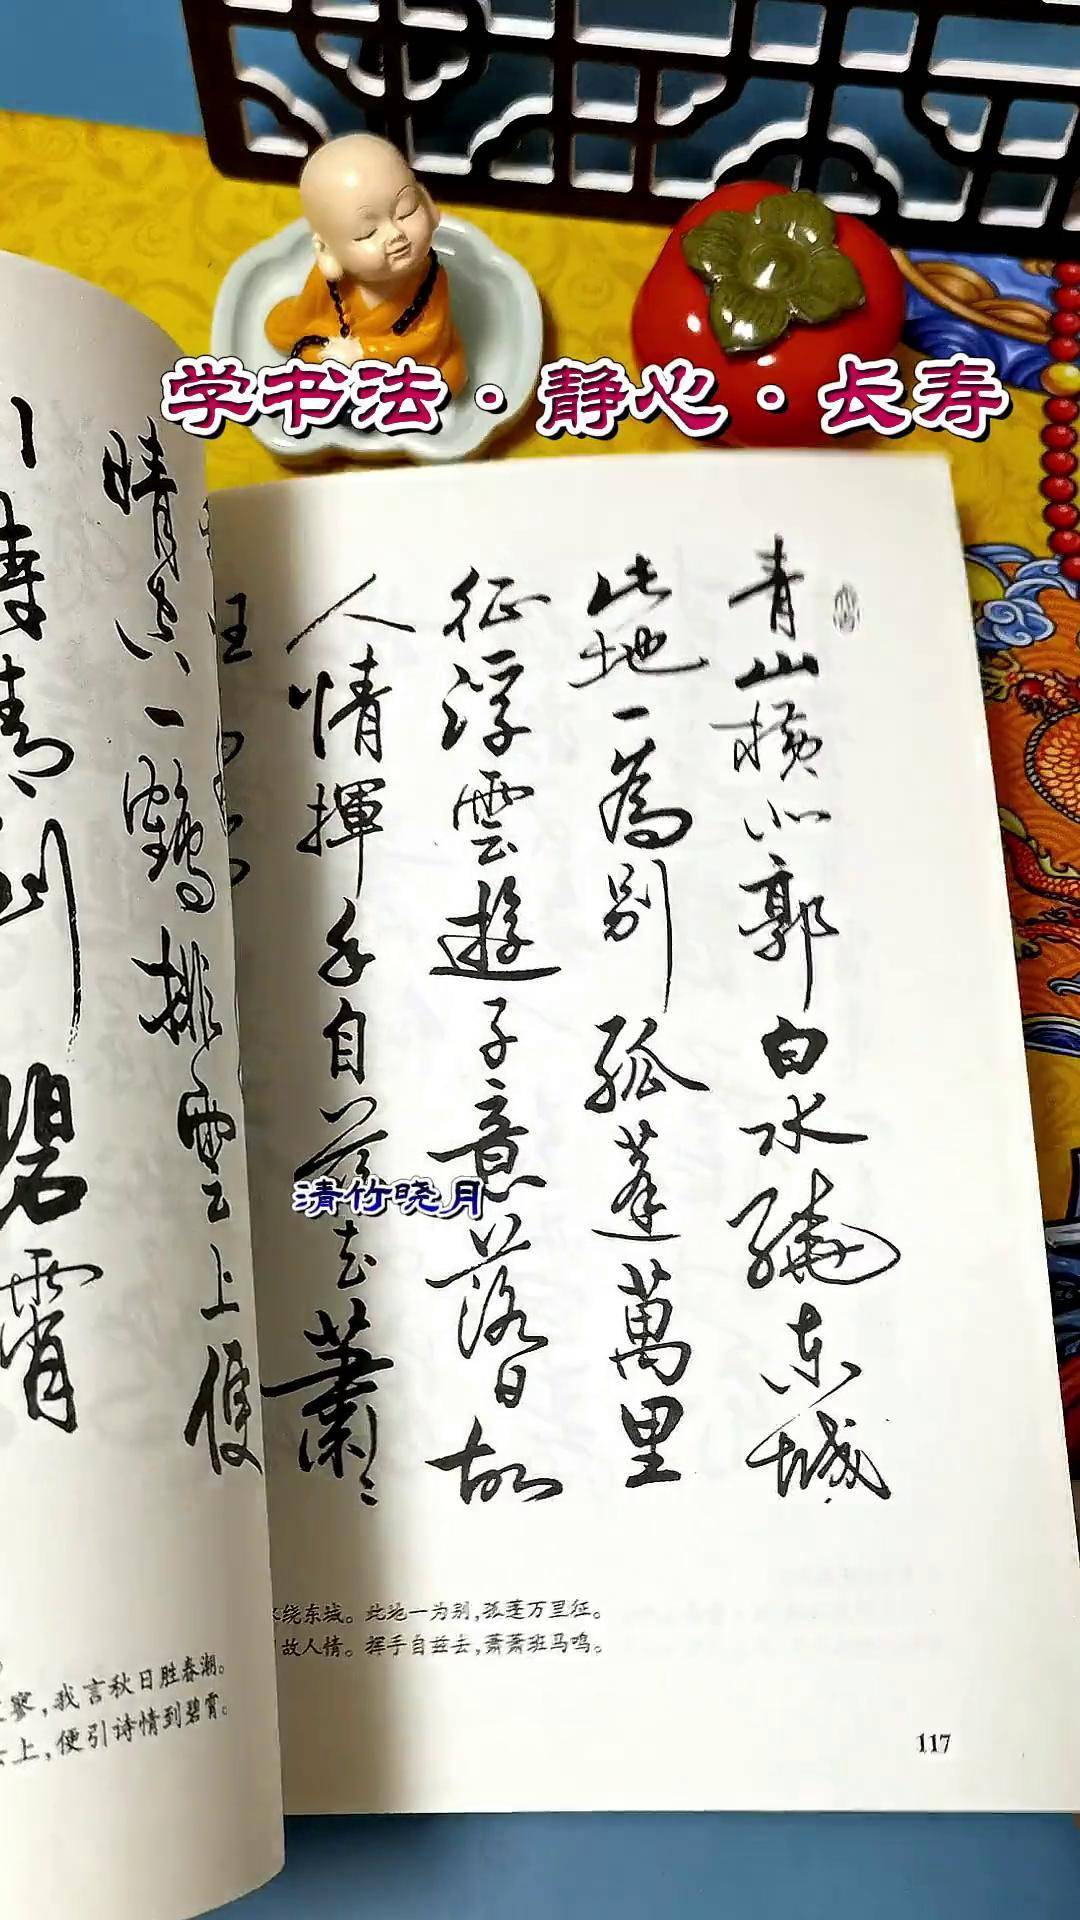 学书法·静心·长寿
青山橫北郭白水繞东城
此地一為别孤蓬萬里
征浮雲遊子意落日故
人情揮手自茲去蕭〻
清竹晓月
水绕东城。此地一为别,孤蓬万里征。
故人情。挥手自兹去,萧萧班马鸣。
117
晴空一鶴排雲上便
詩情到碧霄
寥,我言秋日胜春潮。
上,便引诗情到碧霄。